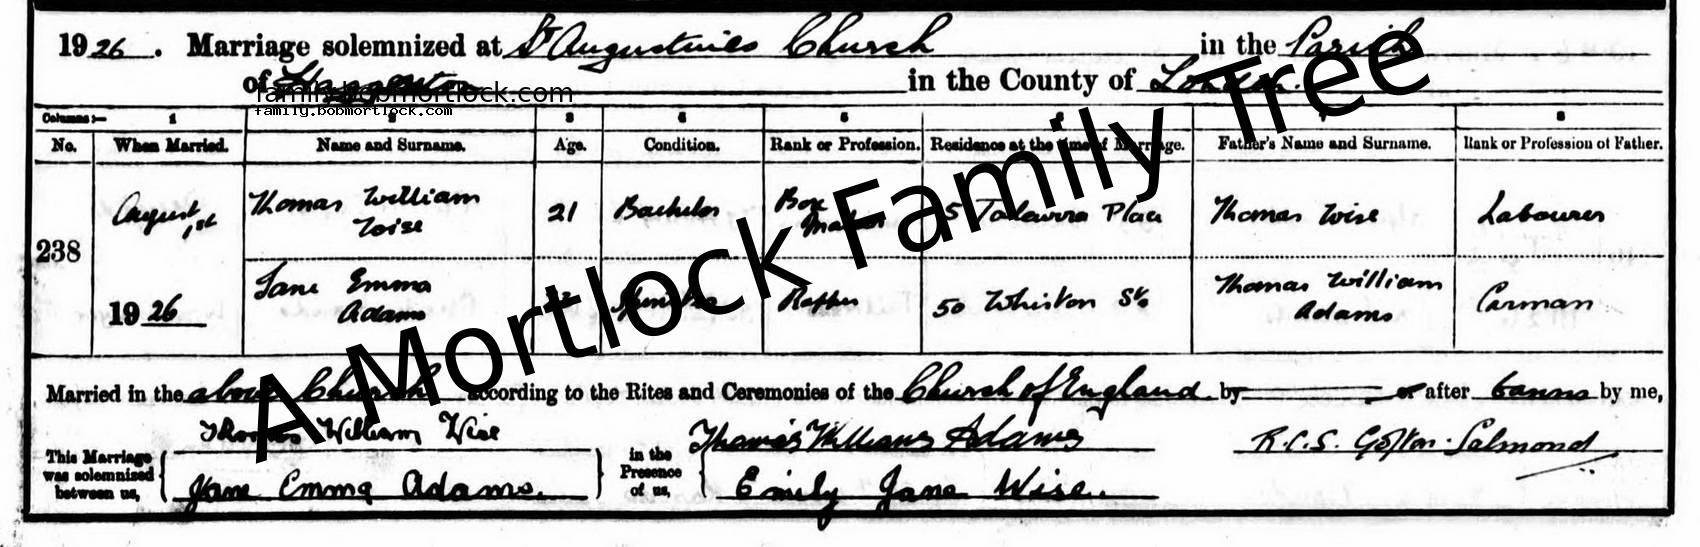 1926. Marriage solemnized at St Augustines Church in the Parish
of Haggerston in the County of London.
family.bobmortlock.com
family.bobmortlock.com
Columns:— 1 2 3 4 5 6 7 8
No. When Married. Name and Surname. Age. Condition. Rank or Profession. Residence at the time of Marriage. Father's Name and Surname. Rank or Profession of Father.
238 August 1st 1926
Thomas William Wise 21 Bachelor Box Maker 5 Talavera Place Thomas Wise Labourer
Jane Emma Adams Spinster 50 Whiston St. Thomas William Adams Carman
Married in the above Church according to the Rites and Ceremonies of the Church of England by or after banns by me,
This Marriage was solemnized between us,
Thomas William Wise
Jane Emma Adams.
in the Presence of us,
Thomas William Adams
Emily Jane Wise.
R.C.S. Salmond
A Mortlock Family Tree